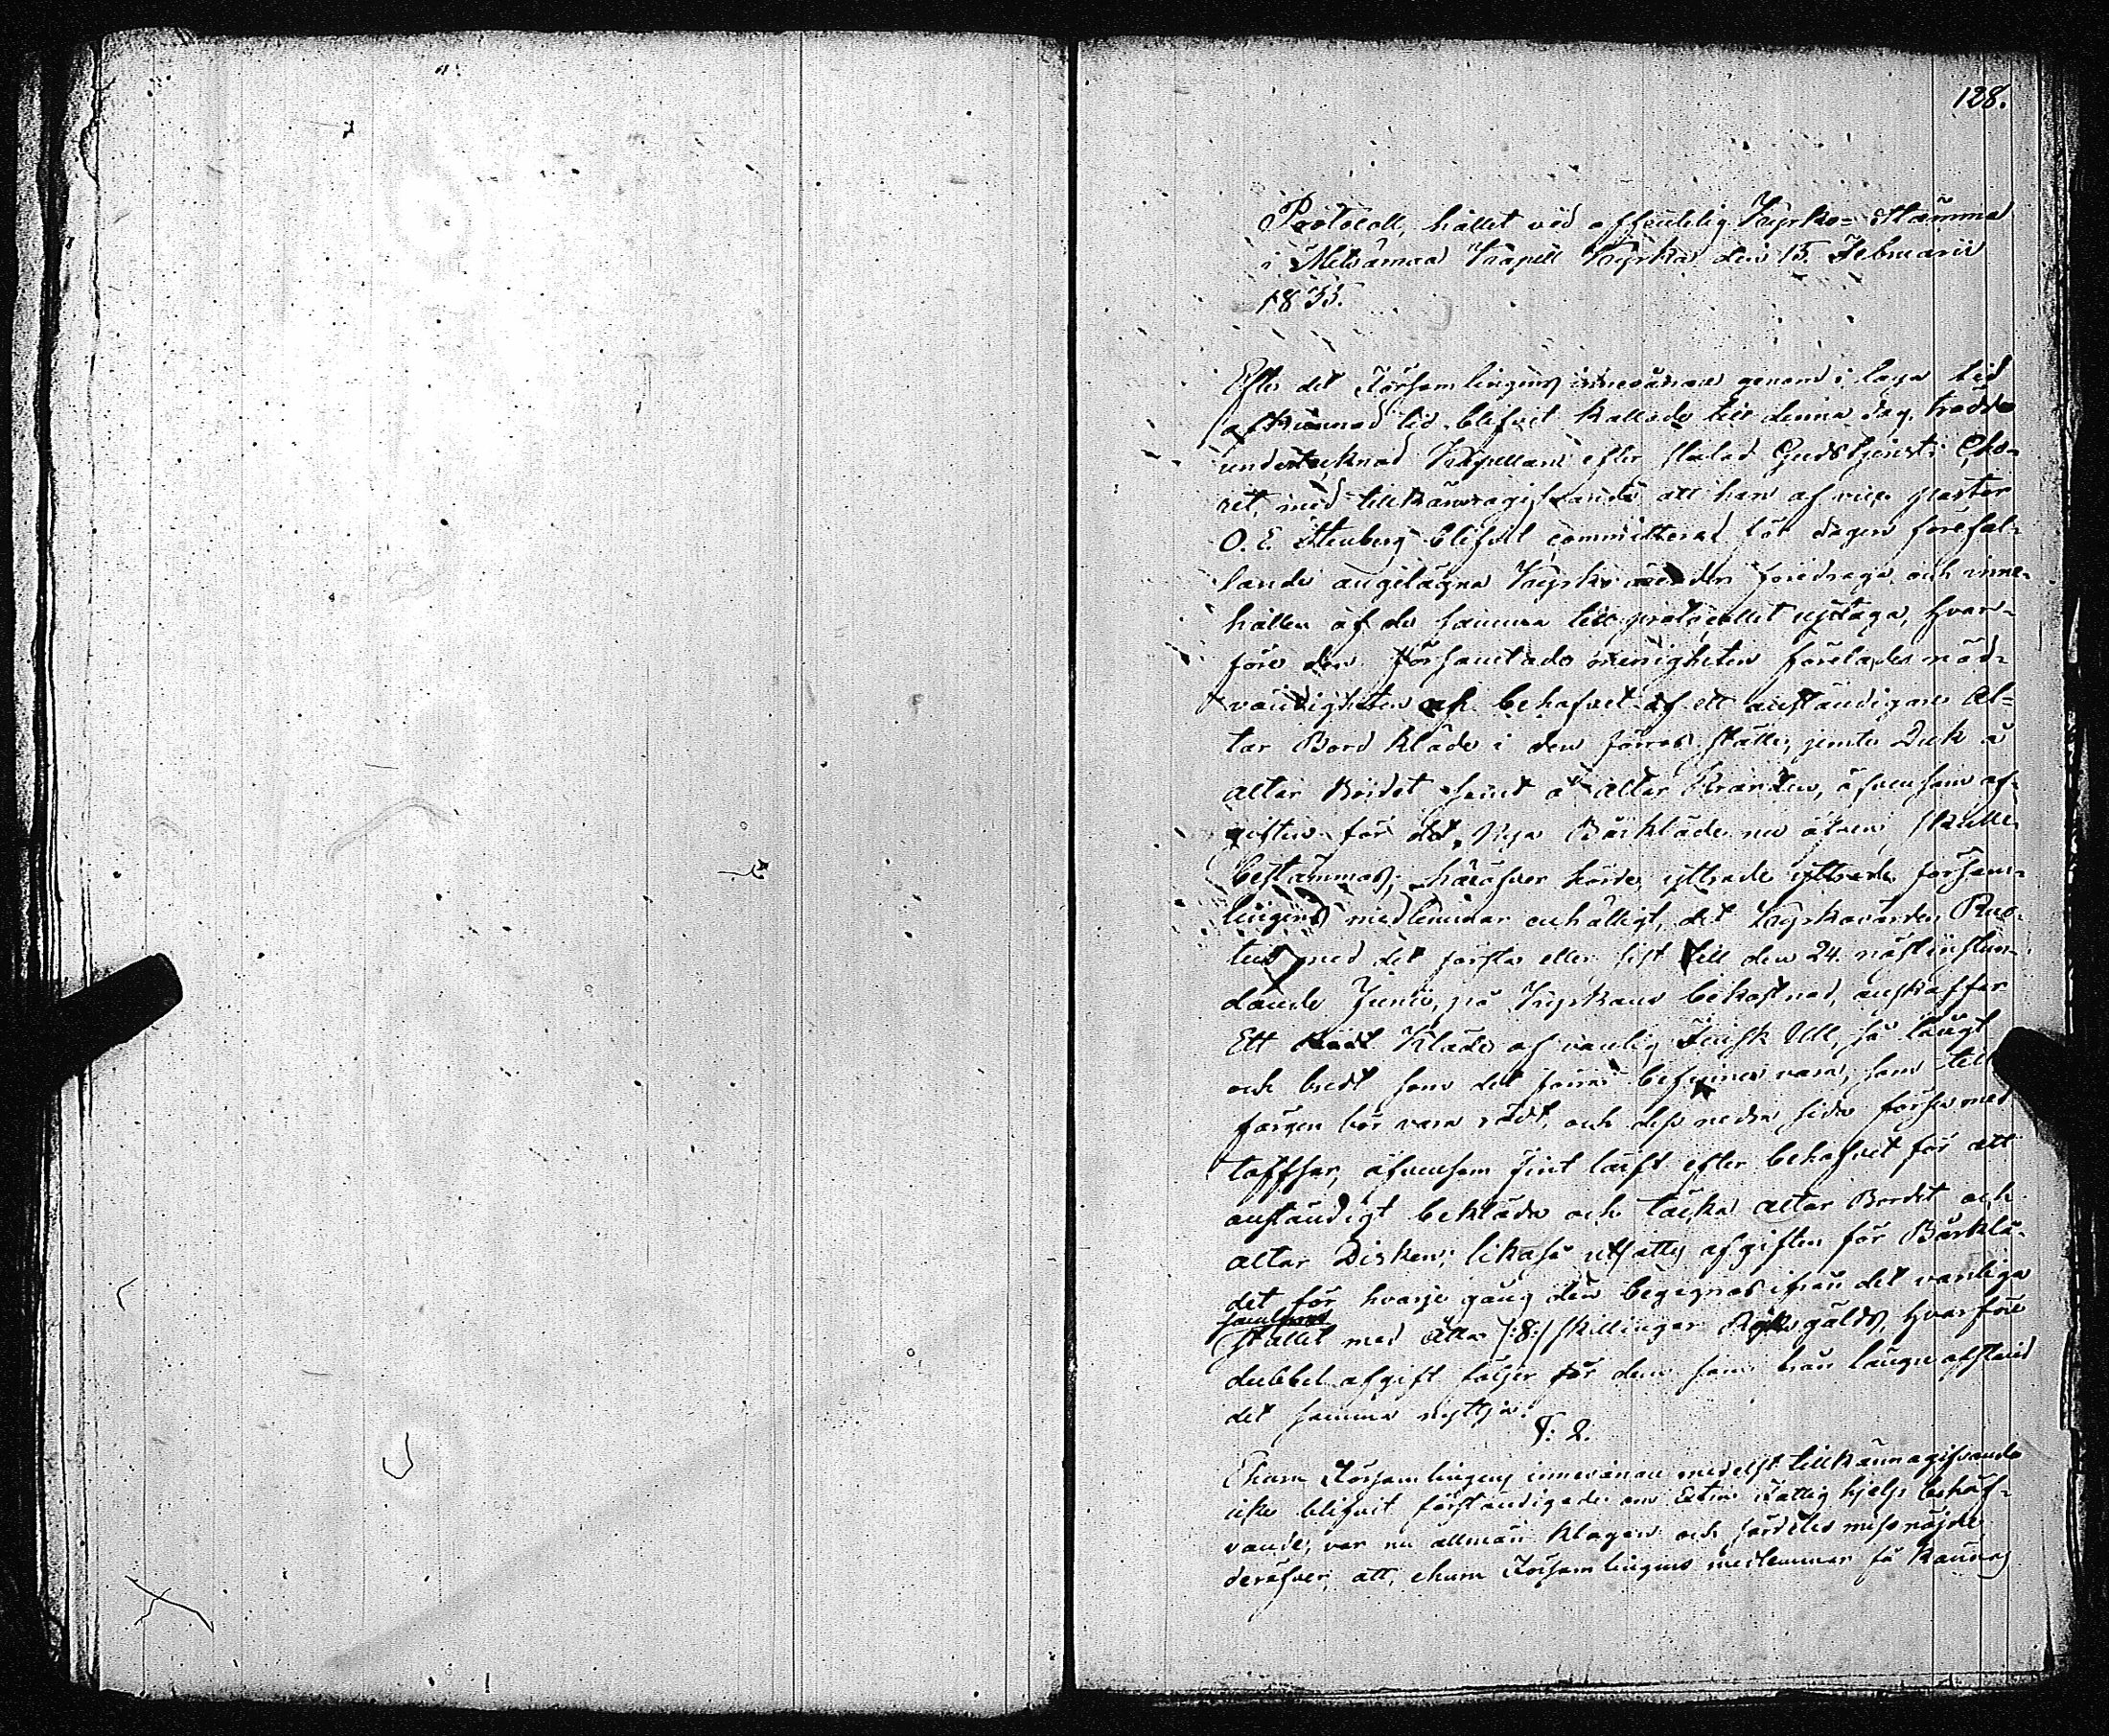 128.
Protocoll, hållet vid offentelig Kyrko-Stämma
i Metsämaa Kapell Kyrka den 15. Februarii
1835.
Efter det Församlingens innevånare genom i laga tid
afkunnad lid blifvit kallade till denna dag, trädde
undertecknad Kapellan efter slutad Gudstjenst i Cho-
ret, med tillkännagifvande att han af vice pastor
O. E. Stenberg blifvit committerad för dagen förefal-
lande angelägna Kyrko ärenden föredraga och inne-
hållen af de samma till protocollet upptaga, hvar-
före den församlade menigheten förelades nöd-
vändigheten och behofvet af ett anständigare Al-
tar Bord kläde i den förras ställe, jemte Duk å
altar Bordet samt å altar Kranden, äfvensom af-
giften för det Nya Bårkläde nu äfven skulle
bestämmas; häröfver hörde yttrade yttrade försam-
lingens medlemmar enhälligt, det Kyrkovärden
med det första eller sist till den 24. nästinstun-
dande Junii, på Kyrkans bekostnad, anskaffar
Ett Kläde af vanlig Finsk Ull, så långt
och bredt som det förra befinnes vara, som till
färgen bör vara rödt, och dess nedra sida förses med
toffsar, äfvensom fint lärft efter behofvet för att
anständigt bekläda och täcka altar Bordet och
altar Disken; likaså utsattes afgiften för Bårklä-
det för hvarje gång den begagnas ifrån det vanliga
stället med Åtta /:8:/ skillingar Riksgälds, hvarföre
dubbel afgift följer för dem som från längre afstånd
det samma nyttja.
§: 2.
Ehuru Församlingens innevånare medelst tillkännagifvande
icke blifvit förständigade om fattig hjelp behöf-
vande, var nu allmän klagan och särdeles missnöjde
deröfver, att, ehuru Församlingens medlemmar få kännas